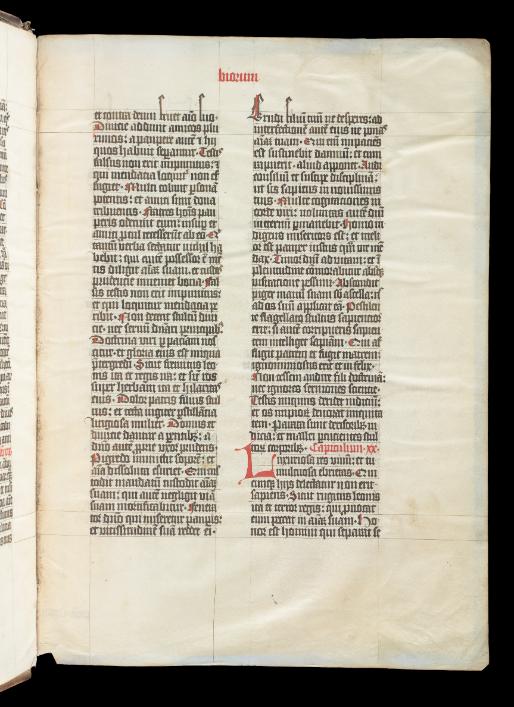 biorum
et contra deum feruet aīo suo.
Diuicie addunt amicos plu
rimos: a paupere autē ⁊ hij
quos habuit separātur. Testis
falsus non erit impunitus: ⁊
qui mendacia loquit᷑ non ef
fugiet. Multi colunt psonā
potentis: et amici sunt dona
tribuentis. Fratres hoīs pau
peris oderunt eum: insup et
amici procul recesserūt ab eo. Q̄
tantū verba sectatur nichil ha
bebit: qui autē possessor ē mē
tis diligit aīam suam: et custos
prudentie inueniet bona. Fal
sus testis non erit impunitus:
et qui loquitur mendacia pe
ribit. Non decent stultū deli
cie: nec seruū dnāri principibꝫ.
Doctrina viri p pacientiam nos
citur: et gloria eius est iniqua
pretergredi. Sicut fremitus leo
nis ita et regis ira: et sicut ros
super herbam ita et hilaritas
eius. Dolor patris filius stul
tus: et tecta iugiter pstillātia
litigiosa mulier. Domus et
diuicie dantur a parentibꝫ: a
dn̄o autē proprie vxor prudens.
Pigredo immittit soporē: et
aīa dissoluta esuriet. Qui cus
todit mandatū custodit aīam
suam: qui autē negligit viā
suam mortificabitur. Fenera
tur dn̄o qui miseretur paupis:
et vicissitudinē suā reddet ei.
Erudi filium tuū ne desperes: ad
interfectionē autē eius ne ponas
aīam tuam. Qui enī impaciēs
est sustinebit damnū: et cum
rapuerit aliud apponet. Audi
consiliū et suscipe disciplinā:
ut sis sapiens in nouissimis
tuis. Multe cogitaciones in
corde viri: voluntas autē dn̄i
in eternū pmanebit. Homo in
digens misericors est: et meli
or est pauper iustus q̄ vir mē
dax. Timor dn̄i ad vitam: et ī
plenitudine cōmorabitur absqꝫ
visitacione pessima. Abscondit
piger manū suam sub ascella: nec
ad os suū applicat eā. Pestilen
te flagellato stultus sapiencior
erit: si autē corripueris sapien
tem intelliget disciplinā. Qui af
fligit patrem et fugat matrem:
ignominiosus erit et infelix.
Non cesses audire fili doctrinā:
nec ignores sermones sciencie.
Testis iniquus deridet iudiciū:
et os impiorū deuorat iniquita
tem. Parata sunt derisoribꝫ iu
dicia: et mallei pcucientes stul
torū corporibꝫ. Capitulum xx.
Luxuriosa res vinū: et tu
multuosa ebrietas. Qui
cūqꝫ hijs delectatur non erit
sapiens. Sicut rugitus leonis
ita et terror regis: qui prouocat
eum peccat in aīam suam. Ho
nor est homini qui separat se